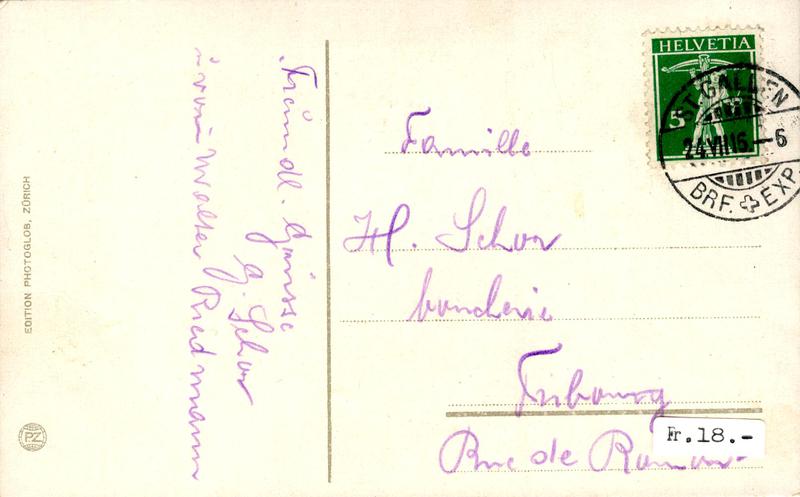 Freundl. Grüsse
G. Schor
von Walter Riedmann
EDITION PHOTOGLOB, ZÜRICH
PZ
HELVETIA
5
ST. GALLEN
24.VII.16.-6
BRF. EXP.
Famille
H. Schor
Fribourg
Rue de
Fr.18.-